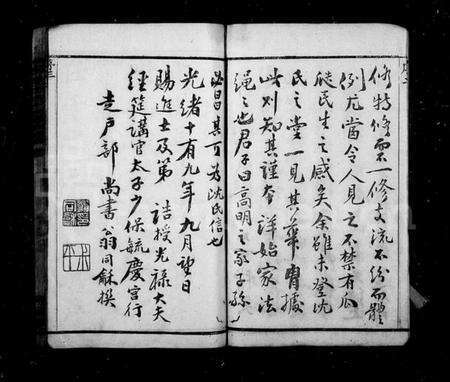 修特修而不一修支流不紛而體
例尤當令人見之不禁有瓜
瓞民生之感矣余雖未登沈
民之堂一見其華冑據
此則知其謹本詳始家法
繩之也君子曰高明之家子孫
必昌其可為沈氏信也
光緒十有九年九月望日
賜進士及第 誥授光祿大夫
經筵講官太子少保毓慶宮行
走戶部尚書翁同龢撰